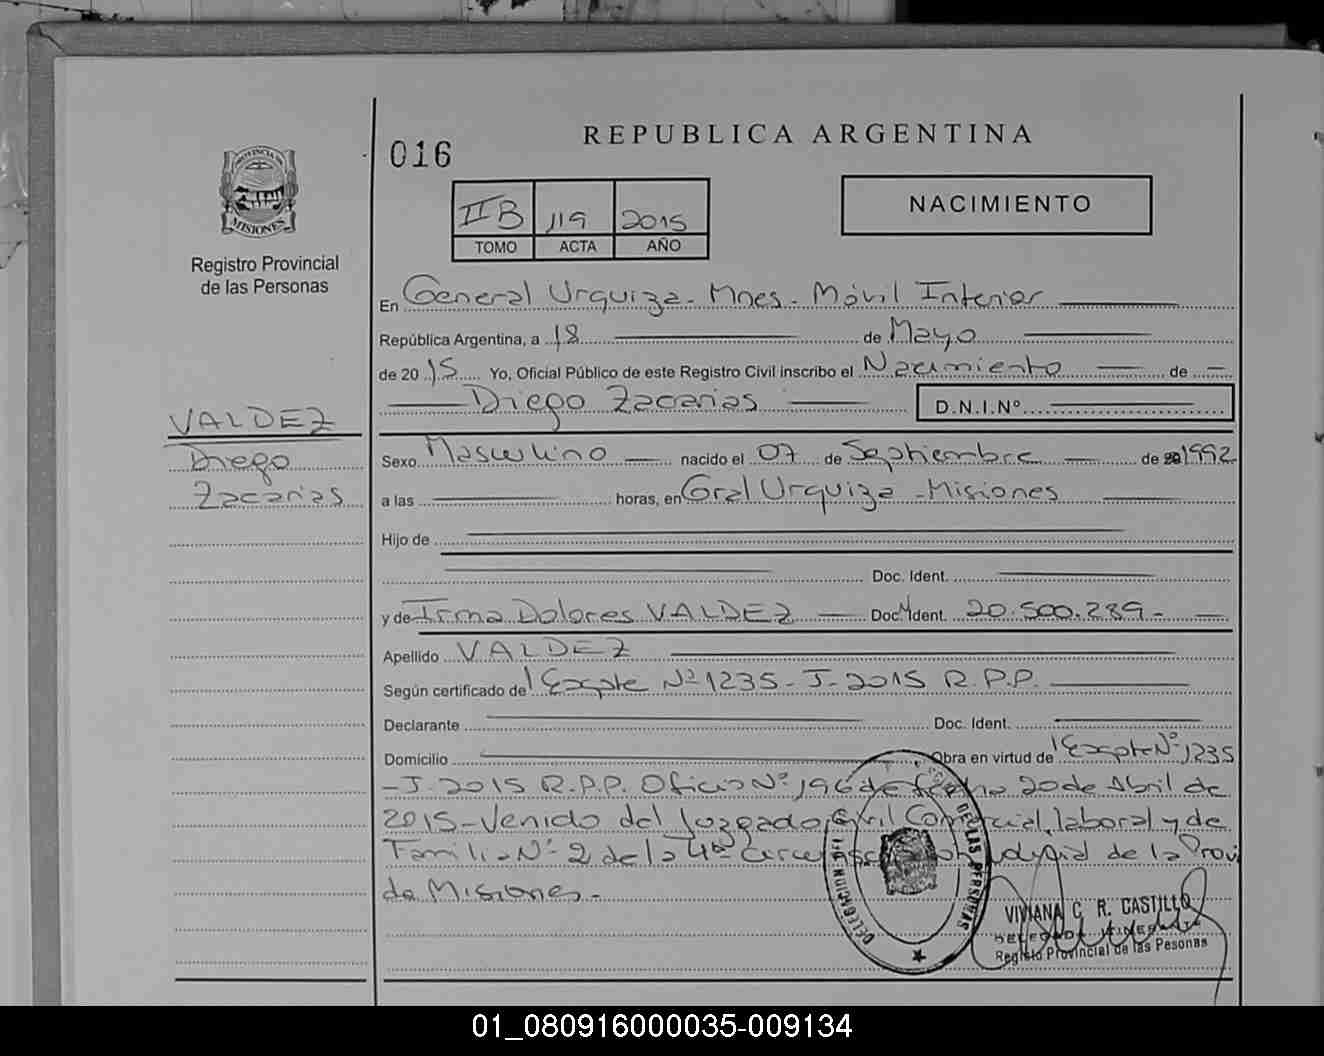 REPUBLICA ARGENTINA
016
NACIMIENTO
II B 119 2015
TOMO ACTA AÑO
PROVINCIA DE
MISIONES
Registro Provincial
de las Personas
VALDEZ
Diego
Zacarias
En General Urquiza - Mnes - Móvil Interior
República Argentina, a 18 de Mayo
de 2015 Yo, Oficial Público de este Registro Civil inscribo el Nacimiento de
Diego Zacarias D.N.I.Nº
Sexo Masculino nacido el 07 de Septiembre de 1992
a las horas, en Gral Urquiza - Misiones
Hijo de
Doc. Ident.
y de Irma Dolores VALDEZ Doc. Ident. 20.500.239-
Apellido VALDEZ
Según certificado del Expte Nº 1235-J-2015 R.P.P.
Declarante Doc. Ident.
Domicilio Obra en virtud del Expte Nº 1235
-J-2015 R.P.P. Oficio Nº 196 de fecha 20 de Abril de
2015-Venido del Juzgado Civil Comercial, laboral y de
Familia Nº 2 de la 4ª Circunscripcion Judicial de la Prov
de Misiones.-
DELEGACION DE LAS PERSONAS
VIVIANA C. R. CASTILLO
DELEGADA ITINERANTE
Registo Provincial de las Pesonas
01_080916000035-009134